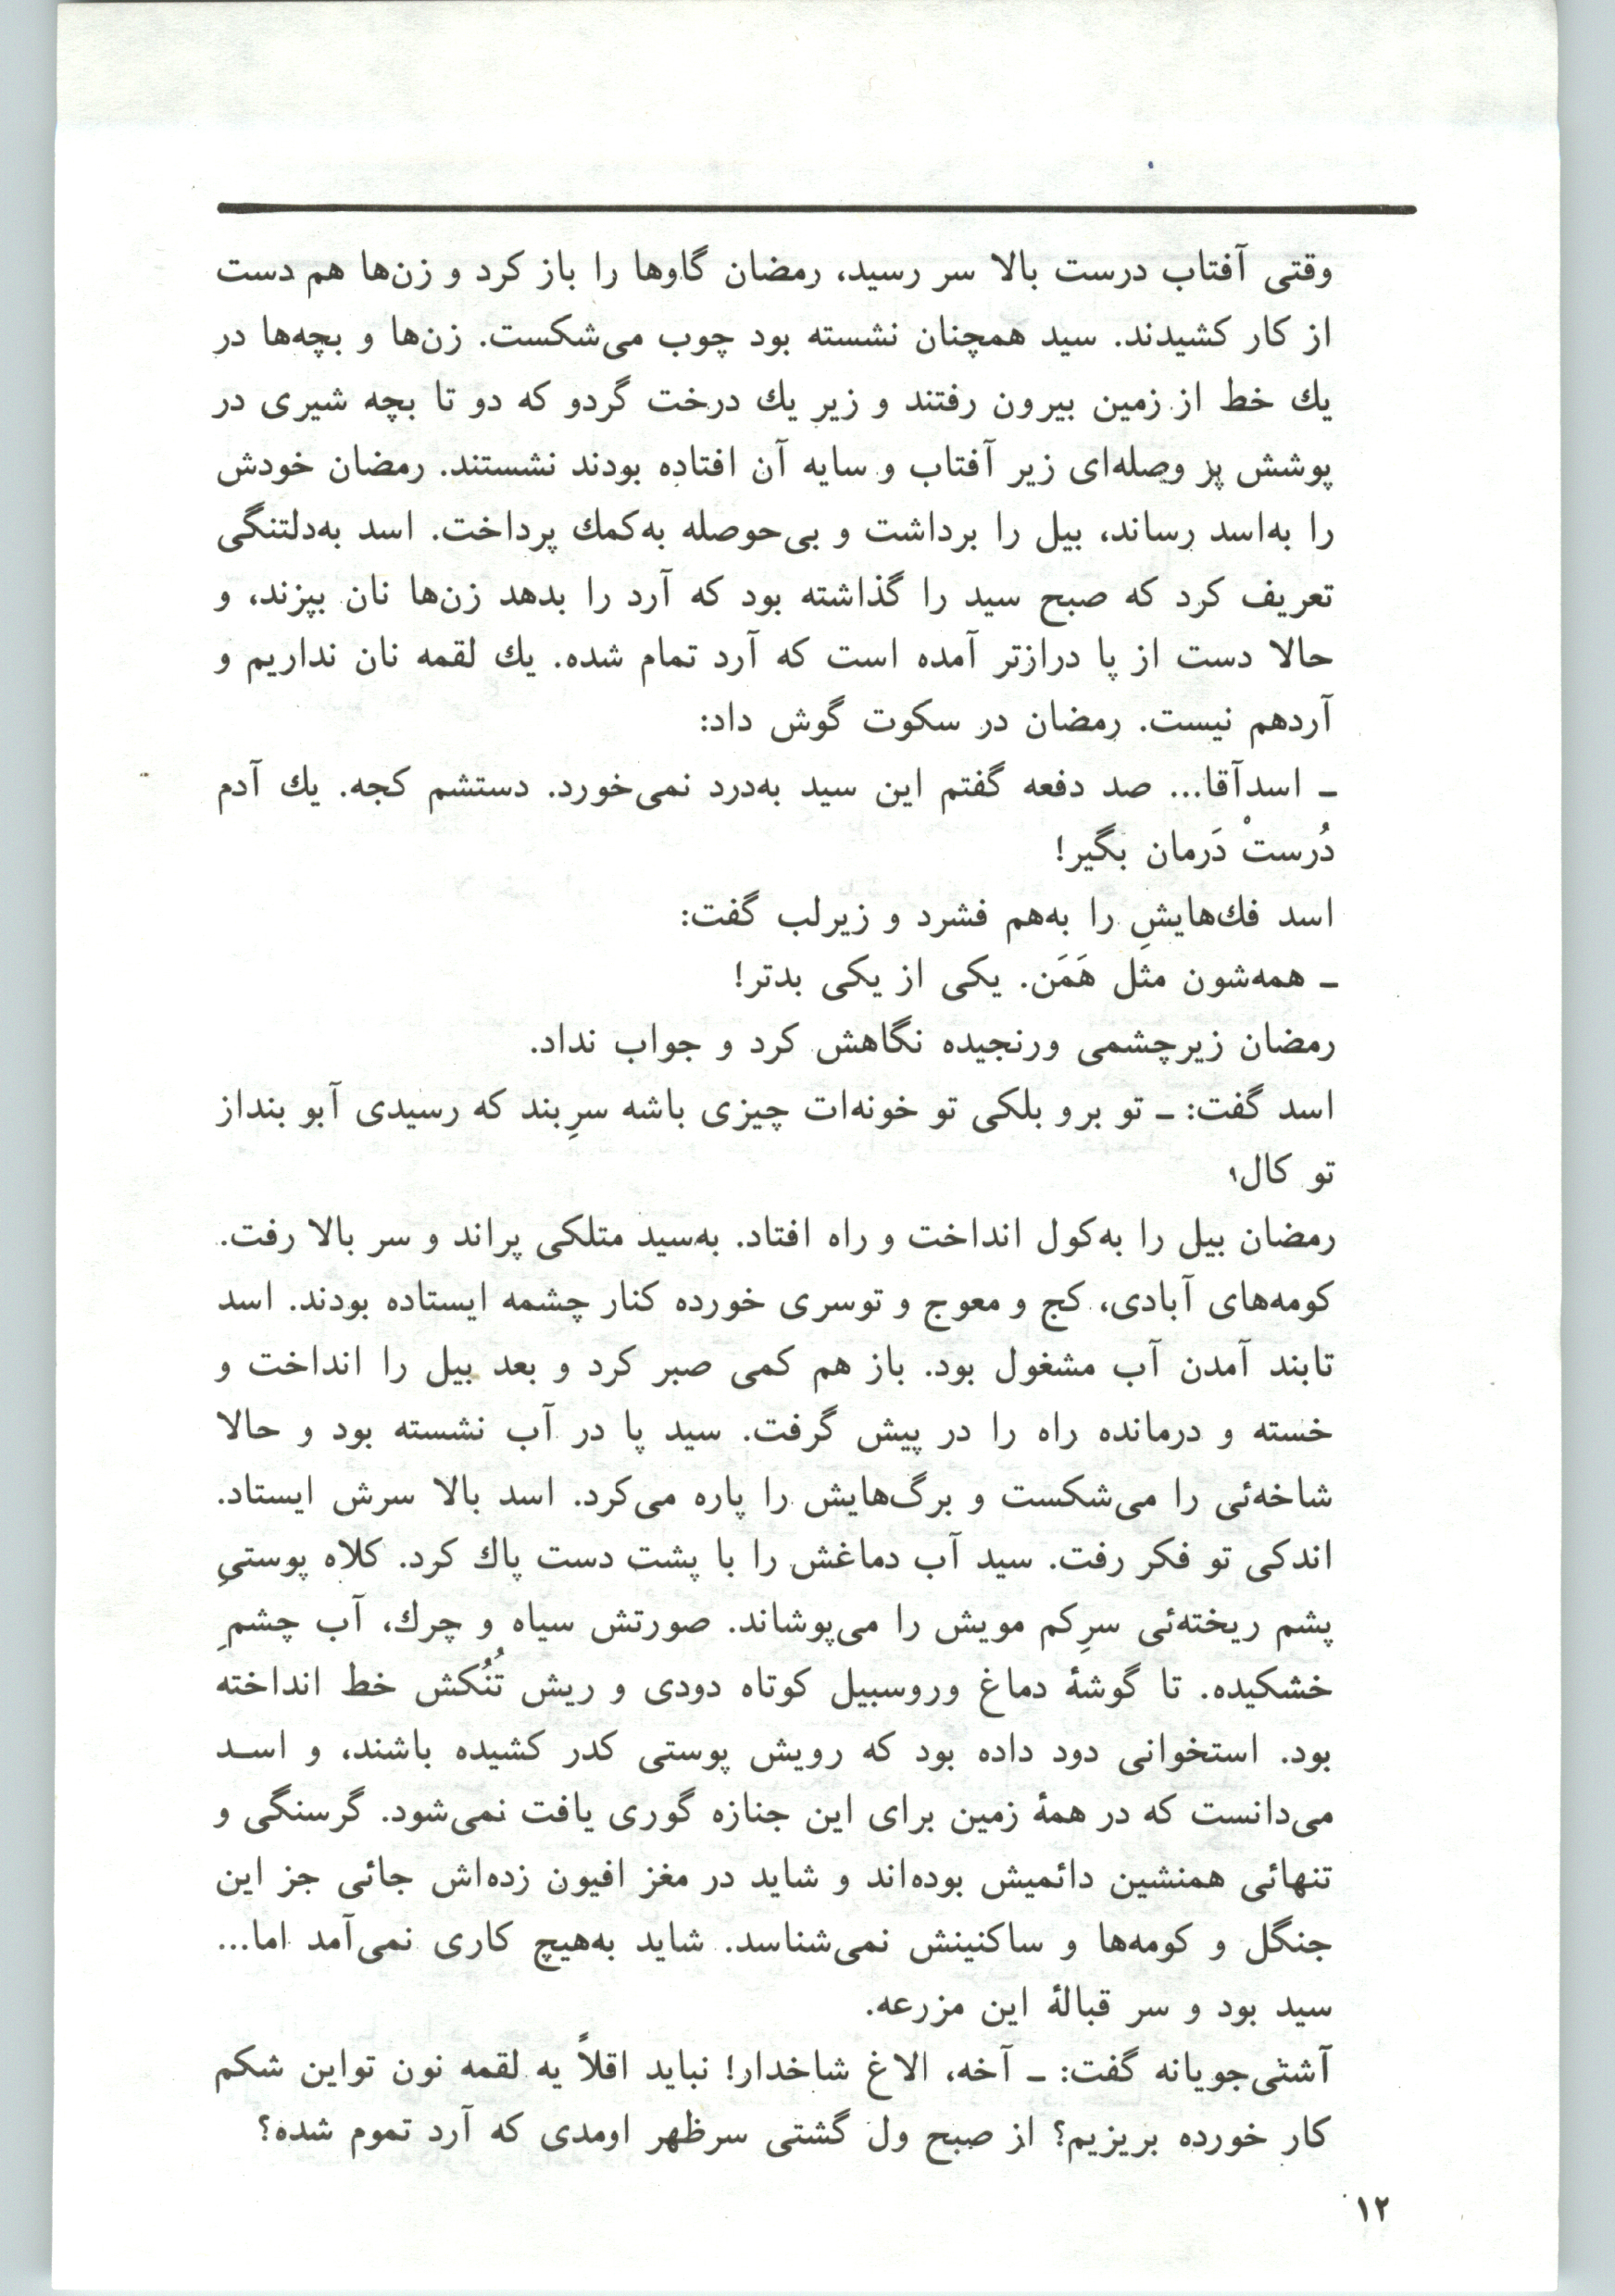 وقتی آفتاب درست بالا سر رسید، رمضان گاوها را باز کرد و زن‌ها هم دست
از کار کشیدند. سید همچنان نشسته بود چوب می‌شکست. زن‌ها و بچه‌ها در
یك خط از زمین بیرون رفتند و زیر یك درخت گردو که دو تا بچه شیری در
پوشش پر وصله‌ای زیر آفتاب و سایه آن افتاده بودند نشستند. رمضان خودش
را به‌اسد رساند، بیل را برداشت و بی‌حوصله به‌کمك پرداخت. اسد به‌دلتنگی
تعریف کرد که صبح سید را گذاشته بود که آرد را بدهد زن‌ها نان بپزند، و
حالا دست از پا درازتر آمده است که آرد تمام شده. یك لقمه نان نداریم و
آردهم نیست. رمضان در سکوت گوش داد:
ـ اسدآقا... صد دفعه گفتم این سید به‌درد نمی‌خورد. دستشم کجه. یك آدم
دُرستْ دَرمان بگیر!
اسد فك‌هایشِ را به‌هم فشرد و زیرلب گفت:
ـ همه‌شون مثل هَمَن. یکی از یکی بدتر!
رمضان زیرچشمی ورنجیده نگاهش کرد و جواب نداد.
اسد گفت: ـ تو برو بلکی تو خونه‌ات چیزی باشه سرِبند که رسیدی آبو بنداز
تو کال۱
رمضان بیل را به‌کول انداخت و راه افتاد. به‌سید متلکی پراند و سر بالا رفت.
کومه‌های آبادی، کج و معوج و توسری خورده کنار چشمه ایستاده بودند. اسد
تابند آمدن آب مشغول بود. باز هم کمی صبر کرد و بعد بیل را انداخت و
خسته و درمانده راه را در پیش گرفت. سید پا در آب نشسته بود و حالا
شاخه‌ئی را می‌شکست و برگ‌هایش را پاره می‌کرد. اسد بالا سرش ایستاد.
اندکی تو فکر رفت. سید آب دماغش را با پشت دست پاك کرد. کلاه پوستیِ
پشم ریخته‌ئی سرِکم مویش را می‌پوشاند. صورتش سیاه و چرك، آب چشمِ
خشکیده. تا گوشهٔ دماغ وروسبیل کوتاه دودی و ریش تُنُکش خط انداخته
بود. استخوانی دود داده بود که رویش پوستی کدر کشیده باشند، و اسـد
می‌دانست که در همهٔ زمین برای این جنازه گوری یافت نمی‌شود. گرسنگی و
تنهائی همنشین دائمیش بوده‌اند و شاید در مغز افیون زده‌اش جائی جز این
جنگل و کومه‌ها و ساکنینش نمی‌شناسد. شاید به‌هیچ کاری نمی‌آمد اما...
سید بود و سر قبالهٔ این مزرعه.
آشتی‌جویانه گفت: ـ آخه، الاغ شاخدار! نباید اقلاً یه لقمه نون تواین شکم
کار خورده بریزیم؟ از صبح ول گشتی سرظهر اومدی که آرد تموم شده؟
۱۲